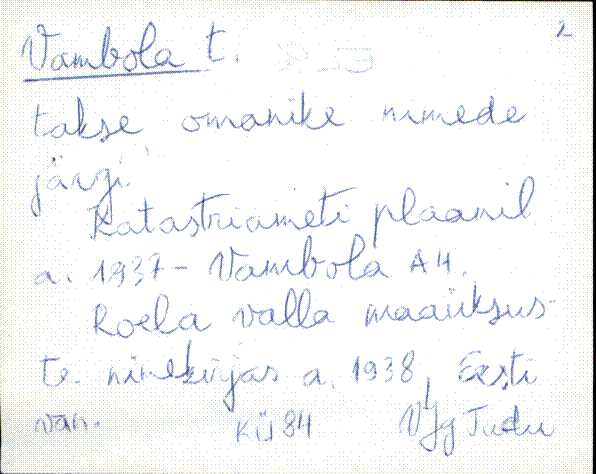 2
Vambola t.
takse omanike nimede
järgi."
Katastriameti plaanil
a. 1937 - Vambola A4.
Roela valla maaüksus-
te nimekirjas a. 1938, Eesti
van. KÜ 84 VJg Tudu